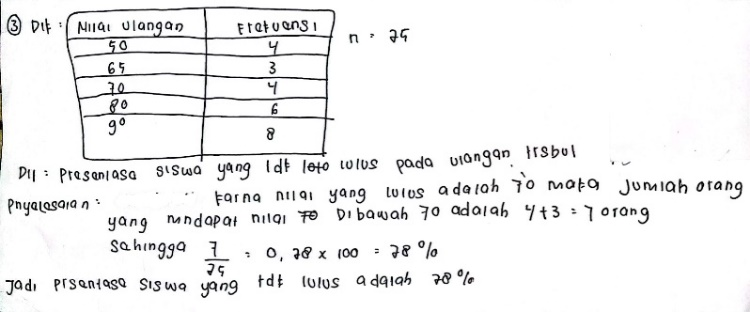 ③ Dit :
Nilai Ulangan Frekuensi
50 4
65 3
70 4
80 6
90 8
n = 25
Dit : Presentasa siswa yang tdk lulus pada ulangan trsbut
Pnyalasaian : karna nilai yang lulus adalah 70 maka jumlah orang
yang mndapat nilai Dibawah 70 adalah 4+3 = 7 orang
Sahingga 7/25 = 0,28 x 100 = 28 %
Jadi prsantase siswa yang tdk lulus adalah 28 %